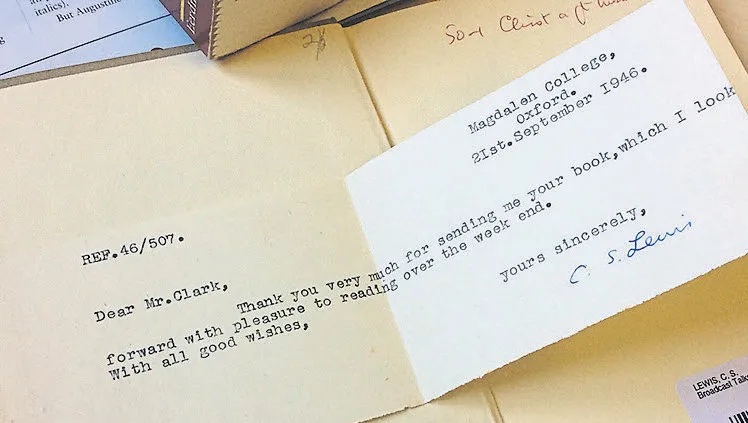 italics).
But Augustine
26
50-1 Christ a
Magdalen College,
Oxford.
21st.September 1946.
REF.46/507.
Dear Mr.Clark,
Thank you very much for sending me your book,which I look
forward with pleasure to reading over the week end.
With all good wishes,
yours sincerely,
C. S. Lewis
LEWIS, C. S.
Broadcast Talks